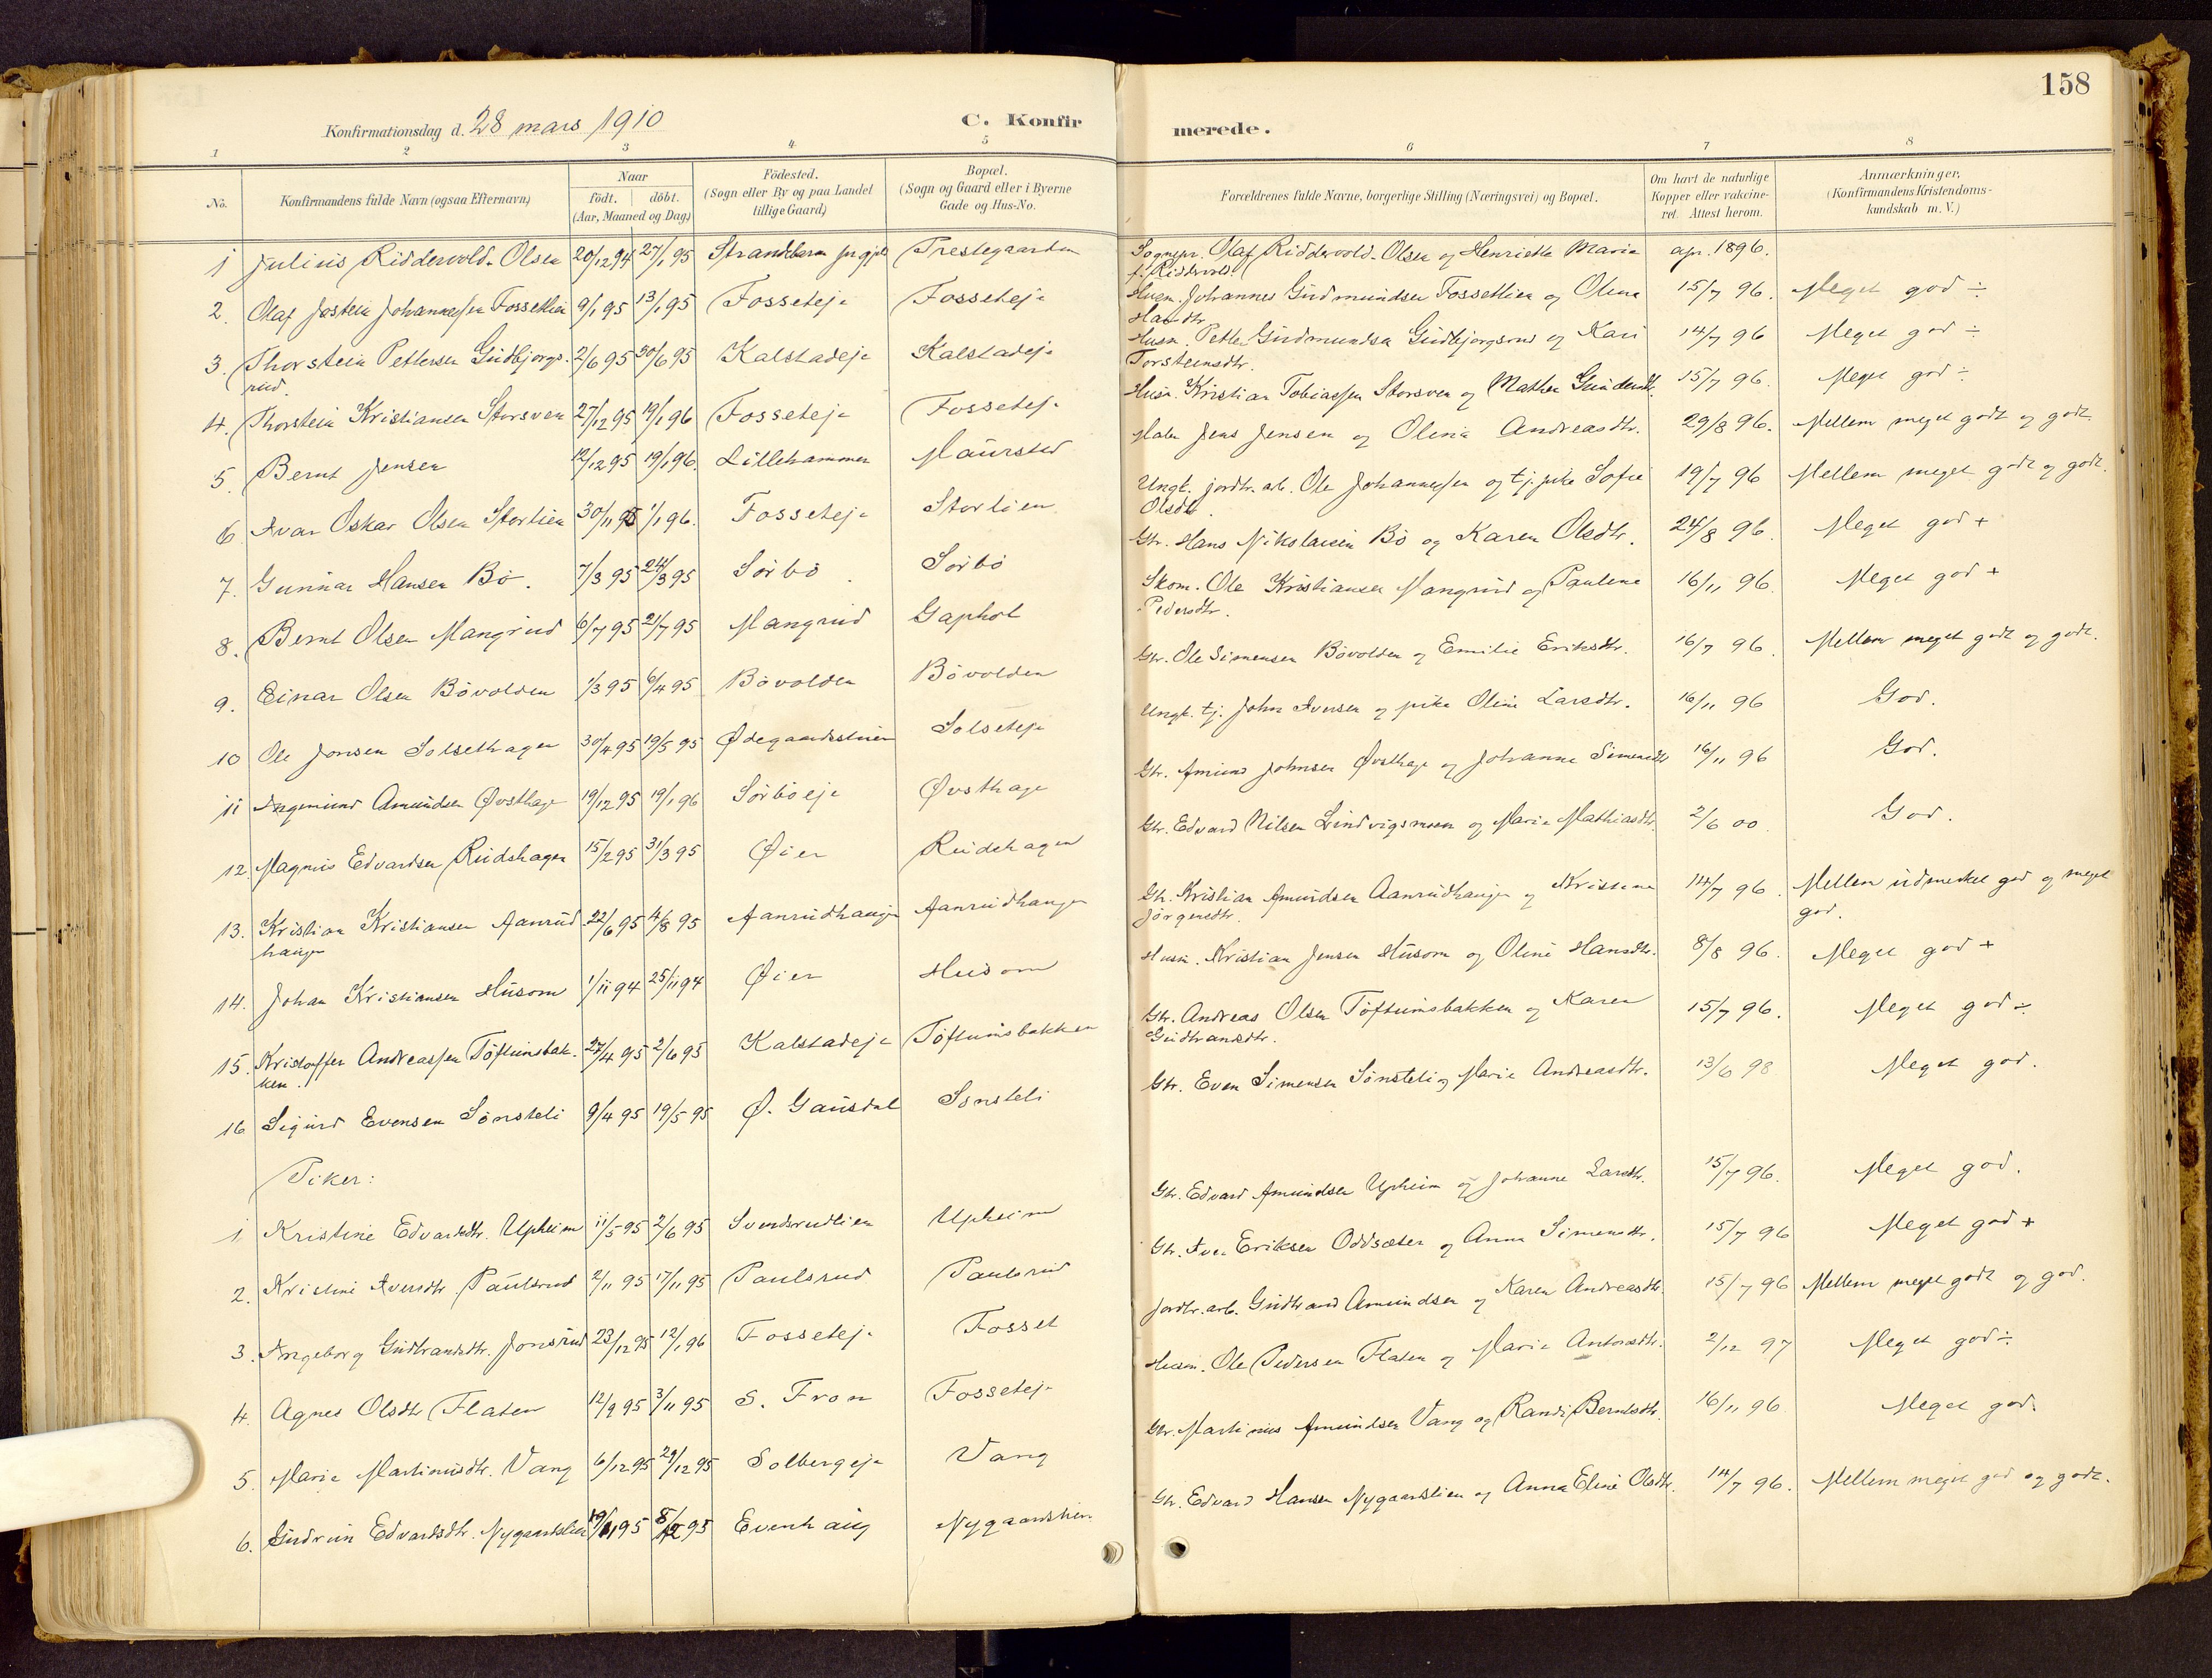 158
Konfirmationsdag d. 28 mars 1910 C. Konfir merede.
1 2 3 4 5 6 7 8
No. Konfirmandens fulde Navn (ogsaa Efternavn) Naar födt. döbt. (Aar, Maaned og Dag) Födested. (Sogn eller By og paa Landet tillige Gaard) Bopæl. (Sogn og Gaard eller i Byerne Gade og Hus-No. Forældrenes fulde Navne, borgerlige Stilling (Næringsvei) og Bopæl. Om havt de naturlige Kopper eller vakcineret. Attest herom. Anmærkninger. (Konfirmandens Kristendomskundskab m. V.)
1 Julius Riddervold-Olsen 20/12 94 27/1 95 Strandebarm prgjeld Prestegaarden Sognepr. Olaf Riddervold-Olsen og Henriette Marie f. Riddervold. apr. 1896.
2. Olaf Jostein Johannessen Fossetlien 9/1 95 13/1 95 Fosseteje Fosseteje Husm. Johannes Gudmundsen Fossetlien og Olena Hansdtr 15/7 96. Meget god ÷
3. Thorstein Pettersen Gudbjorgsrud. 2/6 95 30/6 95 Kalstadeje Kalstadeje Husm. Petter Gudmundsen Gudbjorgsrud og Kari Torsteinsdtr. 14/7 96 Meget god ÷
4. Thorstein Kristiansen Storsveen 27/12 95 19/1 96 Fosseteje Fosseteje Husm. Kristian Tobiassen Storsveen og Mathea Gundersdtr. 15/7 96. Meget god ÷
5. Bernt Jensen 12/12 95 19/1 96. Lillehammer Maurstad Maler Jens Jensen og Olina Andreasdtr. 29/8 96. Mellem meget godt og godt
6. Ivar Oskar Olsen Storlien 30/11 95 1/1 96. Fosseteje Storlien Ungk. jordbr. arb. Ole Johannessen og tj. pike Sofie Olsdtr. 19/7 96 Mellem meget godt og godt.
7. Gunnar Hansen Bö. 7/3 95 24/3 95 Sörbö Sörbö Gbr. Hans Nikolaisen Bö og Karen Olsdtr. 24/8 96. Meget god +
8. Bernt Olsen Mangrud 6/7 95 21/7 95 Mangrud Gaphol Skom. Ole Kristiansen Mangrud og Pauline Pedersdtr. 16/11 96. Meget god +
9. Einar Olsen Bövolden 1/3 95 6/4 95 Bövolden Bövolden Gbr. Ole Simensen Bövolden og Emilie Eriksdtr. 16/7 96. Mellem meget godt og godt.
10 Ole Jonsen Solsethagen 30/4 95 19/5 95 Ødegaardsstuen Solseteje Ungk. tj. John Iversen og pike Oline Larsdtr. 16/11 96 God.
11 Ingemund Amundsen Øvsthage 19/12 95 19/1 96 Sörböeje Øvsthage Gbr. Amund Johnsen Øvsthage og Johanne Simensdtr 16/11 96 God.
12. Magnus Edvardsen Rudshagen 15/2 95 31/3 95 Øier Rudshagen Gbr. Edvard Nilsen Lindvigsmoen og Marie Mathiasdtr. 2/6 00. God.
13. Kristian Kristiansen Aanrudhaugen 22/6 95 4/8 95 Aanrudhaugen Aanrudhaugen Gbr. Kristian Amundsen Aanrudhaugen og Kristine Jörgensdtr. 14/7 96. Mellem udmerket god og meget god.
14. Johan Kristiansen Husom 1/11 94 25/11 94 Øier Husom Husm. Kristian Jensen Husom og Oline Hansdtr. 8/8 96. Meget god +
15. Kristoffer Andreassen Töftumsbakken. 27/4 95 2/6 95 Kalstadeje Töftumsbakken Gbr. Andreas Olsen Töftumsbakken og Karen Gudbrandsdtr. 15/7 96. Meget god ÷
16 Sigurd Evensen Sönsteli 9/4 95 19/5 95 Ø. Gausdal Sönsteli Gbr. Even Simensen Sönsteli og Marie Andreasdtr. 13/6 98 Meget god.
Piker:
1 Kristine Edvardsdtr. Upheim 11/5 95 2/6 95 Svendsrudlien Upheim Gbr. Edvard Amundsen Upheim og Johanne Larsdtr. 15/7 96. Meget god.
2. Kristine Iversdtr. Paulsrud 2/11 95 17/11 95 Paulsrud Paulsrud Gbr. Iver Eriksen Oddsæter og Anne Simensdtr. 15/7 96 Meget god +
3. Ingeborg Gudbrandsdtr. Jonsrud 23/12 95 12/1 96 Fosseteje Fosset Jordbr. arb. Gudbrand Amundsen og Karen Andreasdtr. 15/7 96 Mellem meget godt og god.
4. Agnes Olsdtr Flaten 12/9 95 3/11 95 S. Fron Fosseteje Husm. Ole Pedersen Flaten og Marie Antonsdtr. 2/12 97 Meget god ÷
5. Marie Martinusdtr. Vang 6/12 95 29/12 95 Solbergeje Vang Gbr. Martinus Amundsen Vang og Randi Berntsdtr. 16/11 96 Meget god.
6. Gudrun Edvardsdtr. Nygaardslien 19/11 95 8/12 95 Evenhaug Nygaardslien Gbr. Edvard Hansen Nygaardslien og Anna Eline Olsdtr. 14/7 96. Mellem meget god og godt.